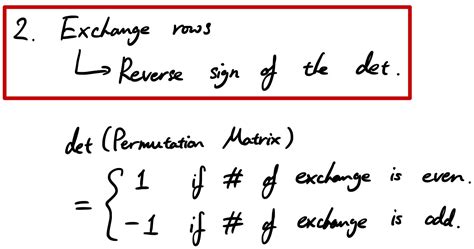 2. Exchange rows
↳ Reverse sign of the det.
det (Permutation Matrix)
= { 1 if # of exchange is even.
-1 if # of exchange is odd.